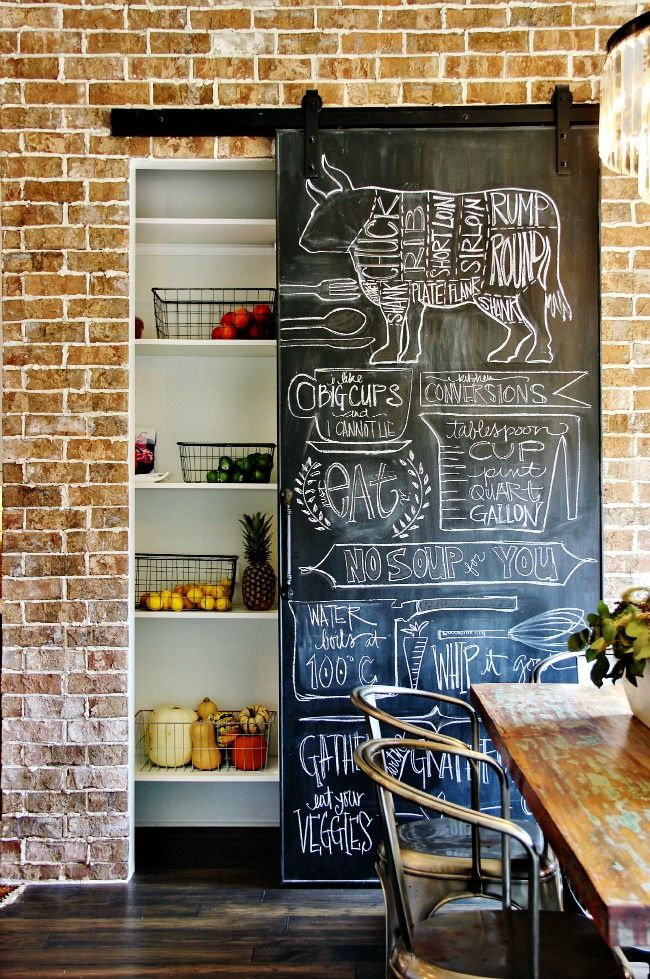 CHUCK
RIB
SHORT LOIN
SIRLOIN
RUMP
ROUND
SHANK
PLATE
FLANK
SHANK
i like
BIG CUPS
and
I CANNOT LIE
kitchen
CONVERSIONS
tablespoon
CUP
pint
QUART
GALLON
eat
NO SOUP for YOU
WATER
boils at
100°C
WHIP it go
GATHER
GRAT
eat your
VEGGIES